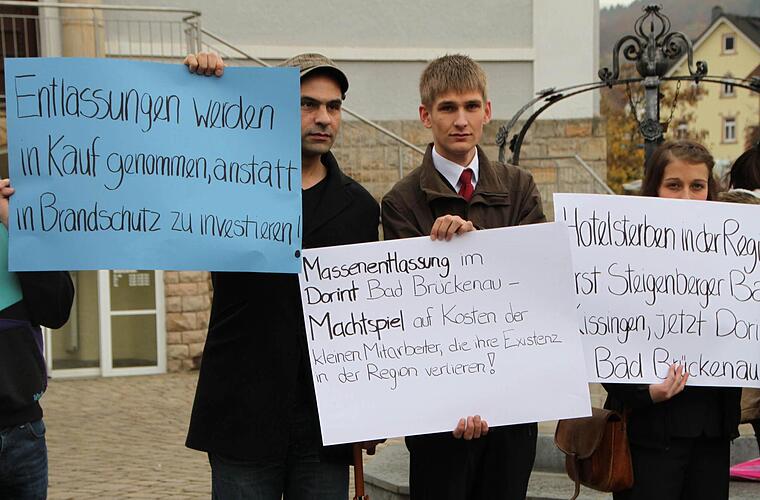 Entlassungen werden
in Kauf genommen, anstatt
in Brandschutz zu investieren!
Massenentlassung im
Dorint Bad Brückenau –
Machtspiel auf Kosten der
kleinen Mitarbeiter, die ihre Existenz
in der Region verlieren!
Hotelsterben in der Regi
rst Steigenberger Ba
Kissingen, jetzt Dori
Bad Brückenau